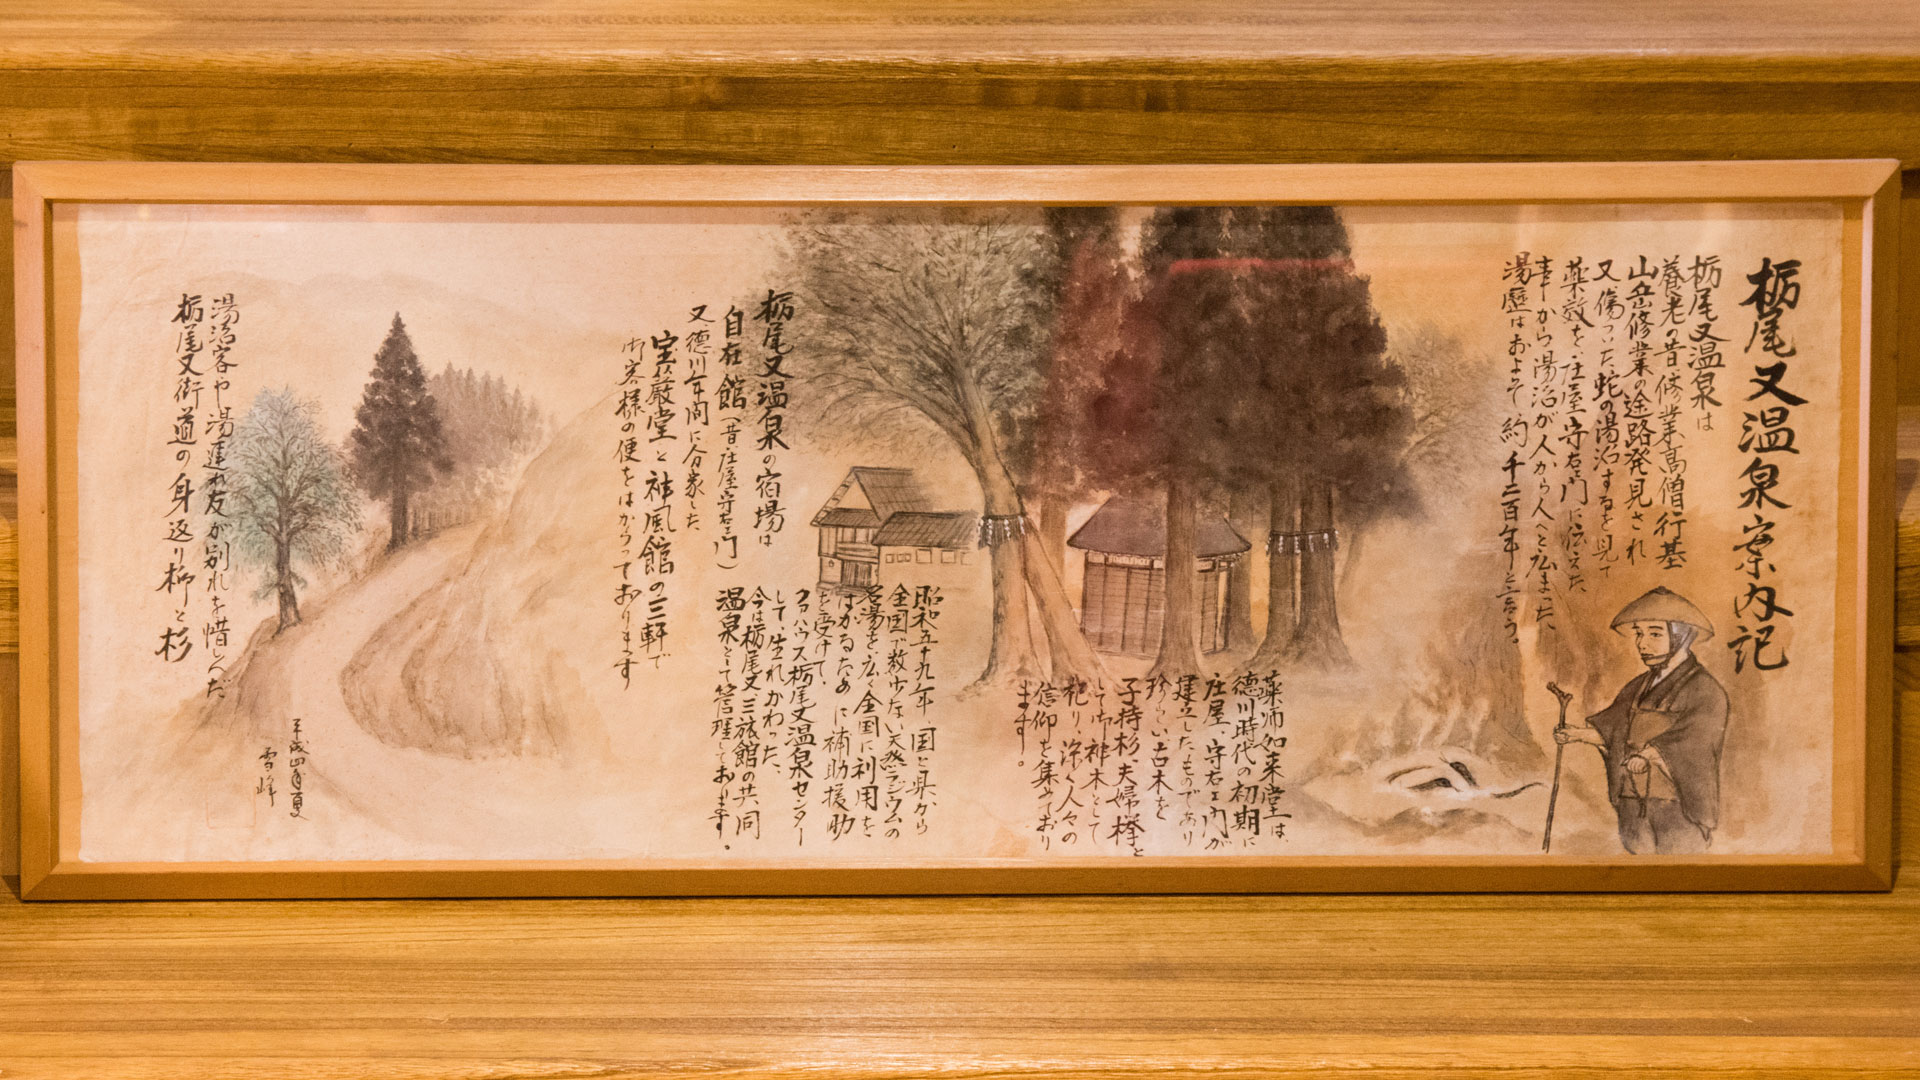 栃尾又温泉案内記
栃尾又温泉は
養老の昔修業高僧行基
山岳修業の途路発見され
又傷ついた蛇の湯治するを見て
薬效を庄屋守右ェ門に伝えた
事から湯治が人から人へと広まった、
湯歴はおよそ約千二百年と言う。
薬師如来堂は、
徳川時代の初期に
庄屋、守右ェ門が
建立したものであり
珍らしい古木を
子持杉、夫婦欅と
して御神木として
祀り、深く人々の
信仰を集めており
ます。
栃尾又温泉の宿場は
自在館(昔庄屋守右ェ門)
又徳川年間に分家した
宝巌堂と神風館の三軒で
御客様の便をはかっております
昭和五十九年、国と県から
全国で数少ない天然ラジウムの
名湯を広く全国に利用を
はかるために補助援助
を受けて、
クアハウス栃尾又温泉センター
して、生れかわった、
今は栃尾又、三旅館の共同
温泉として管理しております。
湯治客や湯連れ友が別れを惜しんだ
栃尾又街道の身返り柳と杉
平成四年夏
雪峰